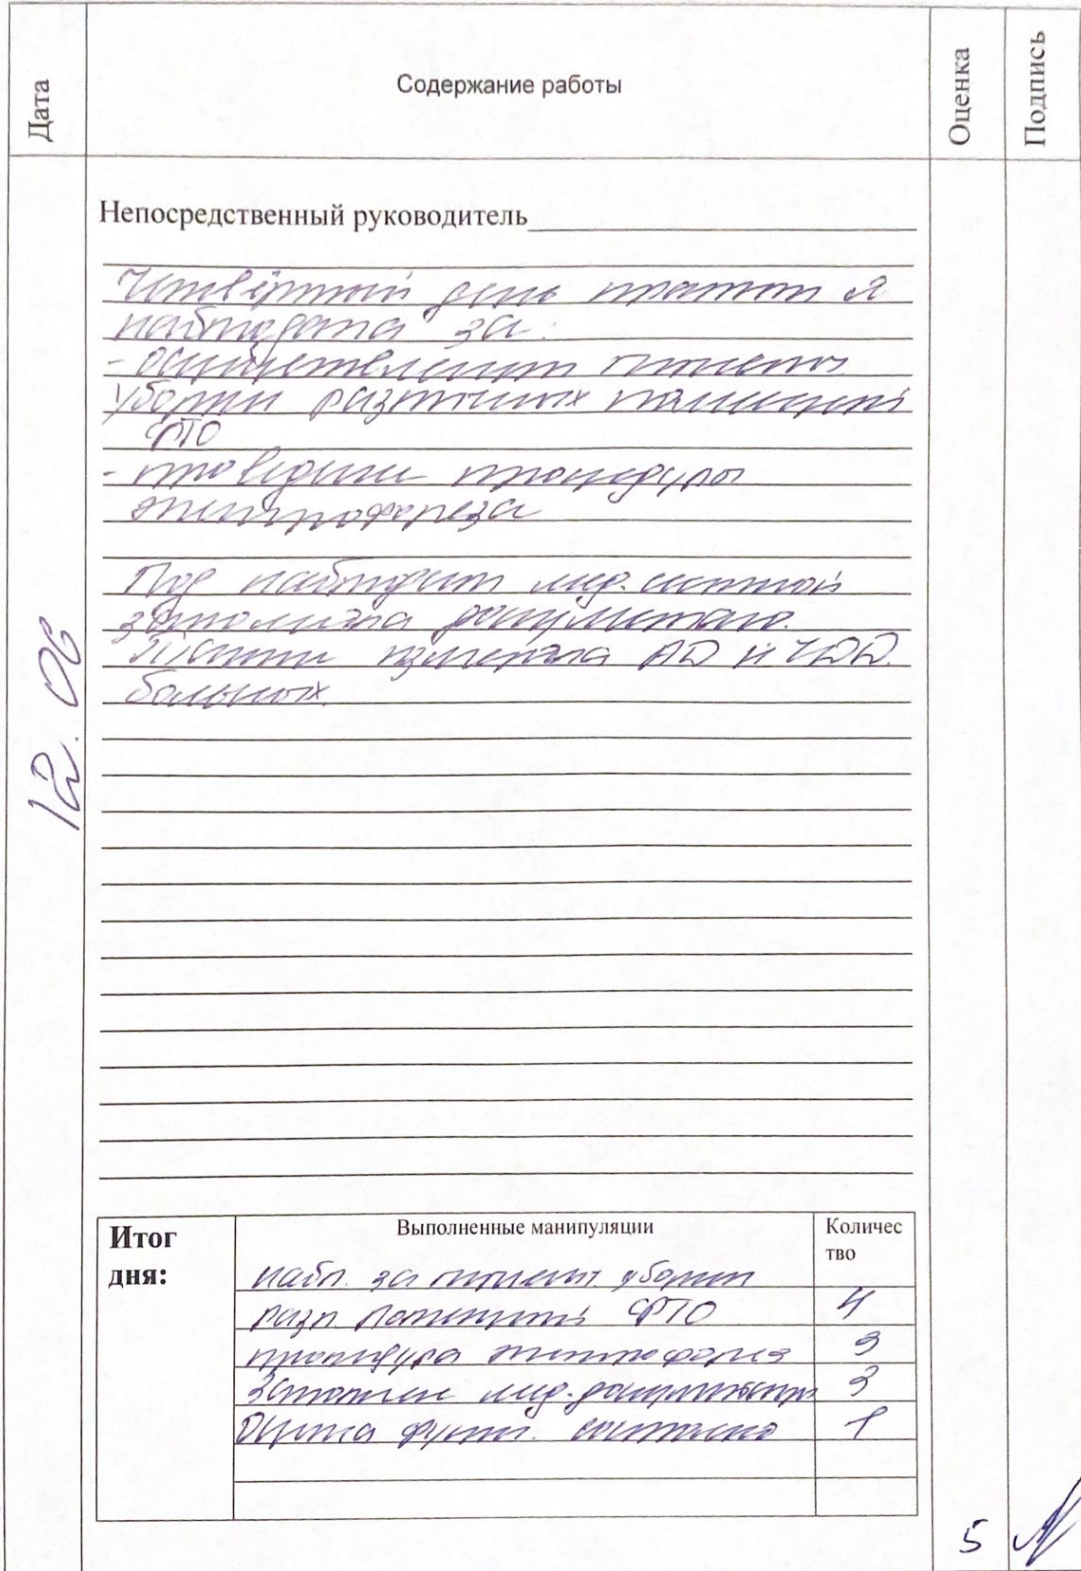 Дата
Содержание работы
Оценка
Подпись
Непосредственный руководитель
Четвёртый день практики я
наблюдала за:
- осуществлением
уборки различных помещений
ФТО
- проведение процедуры
электрофореза
Под наблюдением мед. сестрой
заполняла документацию.
Также измеряла АД и ЧДД
больных.
12.06
Итог дня:
Выполненные манипуляции
Количес
тво
набл. за уборкой
разл помещений ФТО 4
процедура электрофорез 3
Заполнение мед. документации 3
Оценка функ. состояние 1
5